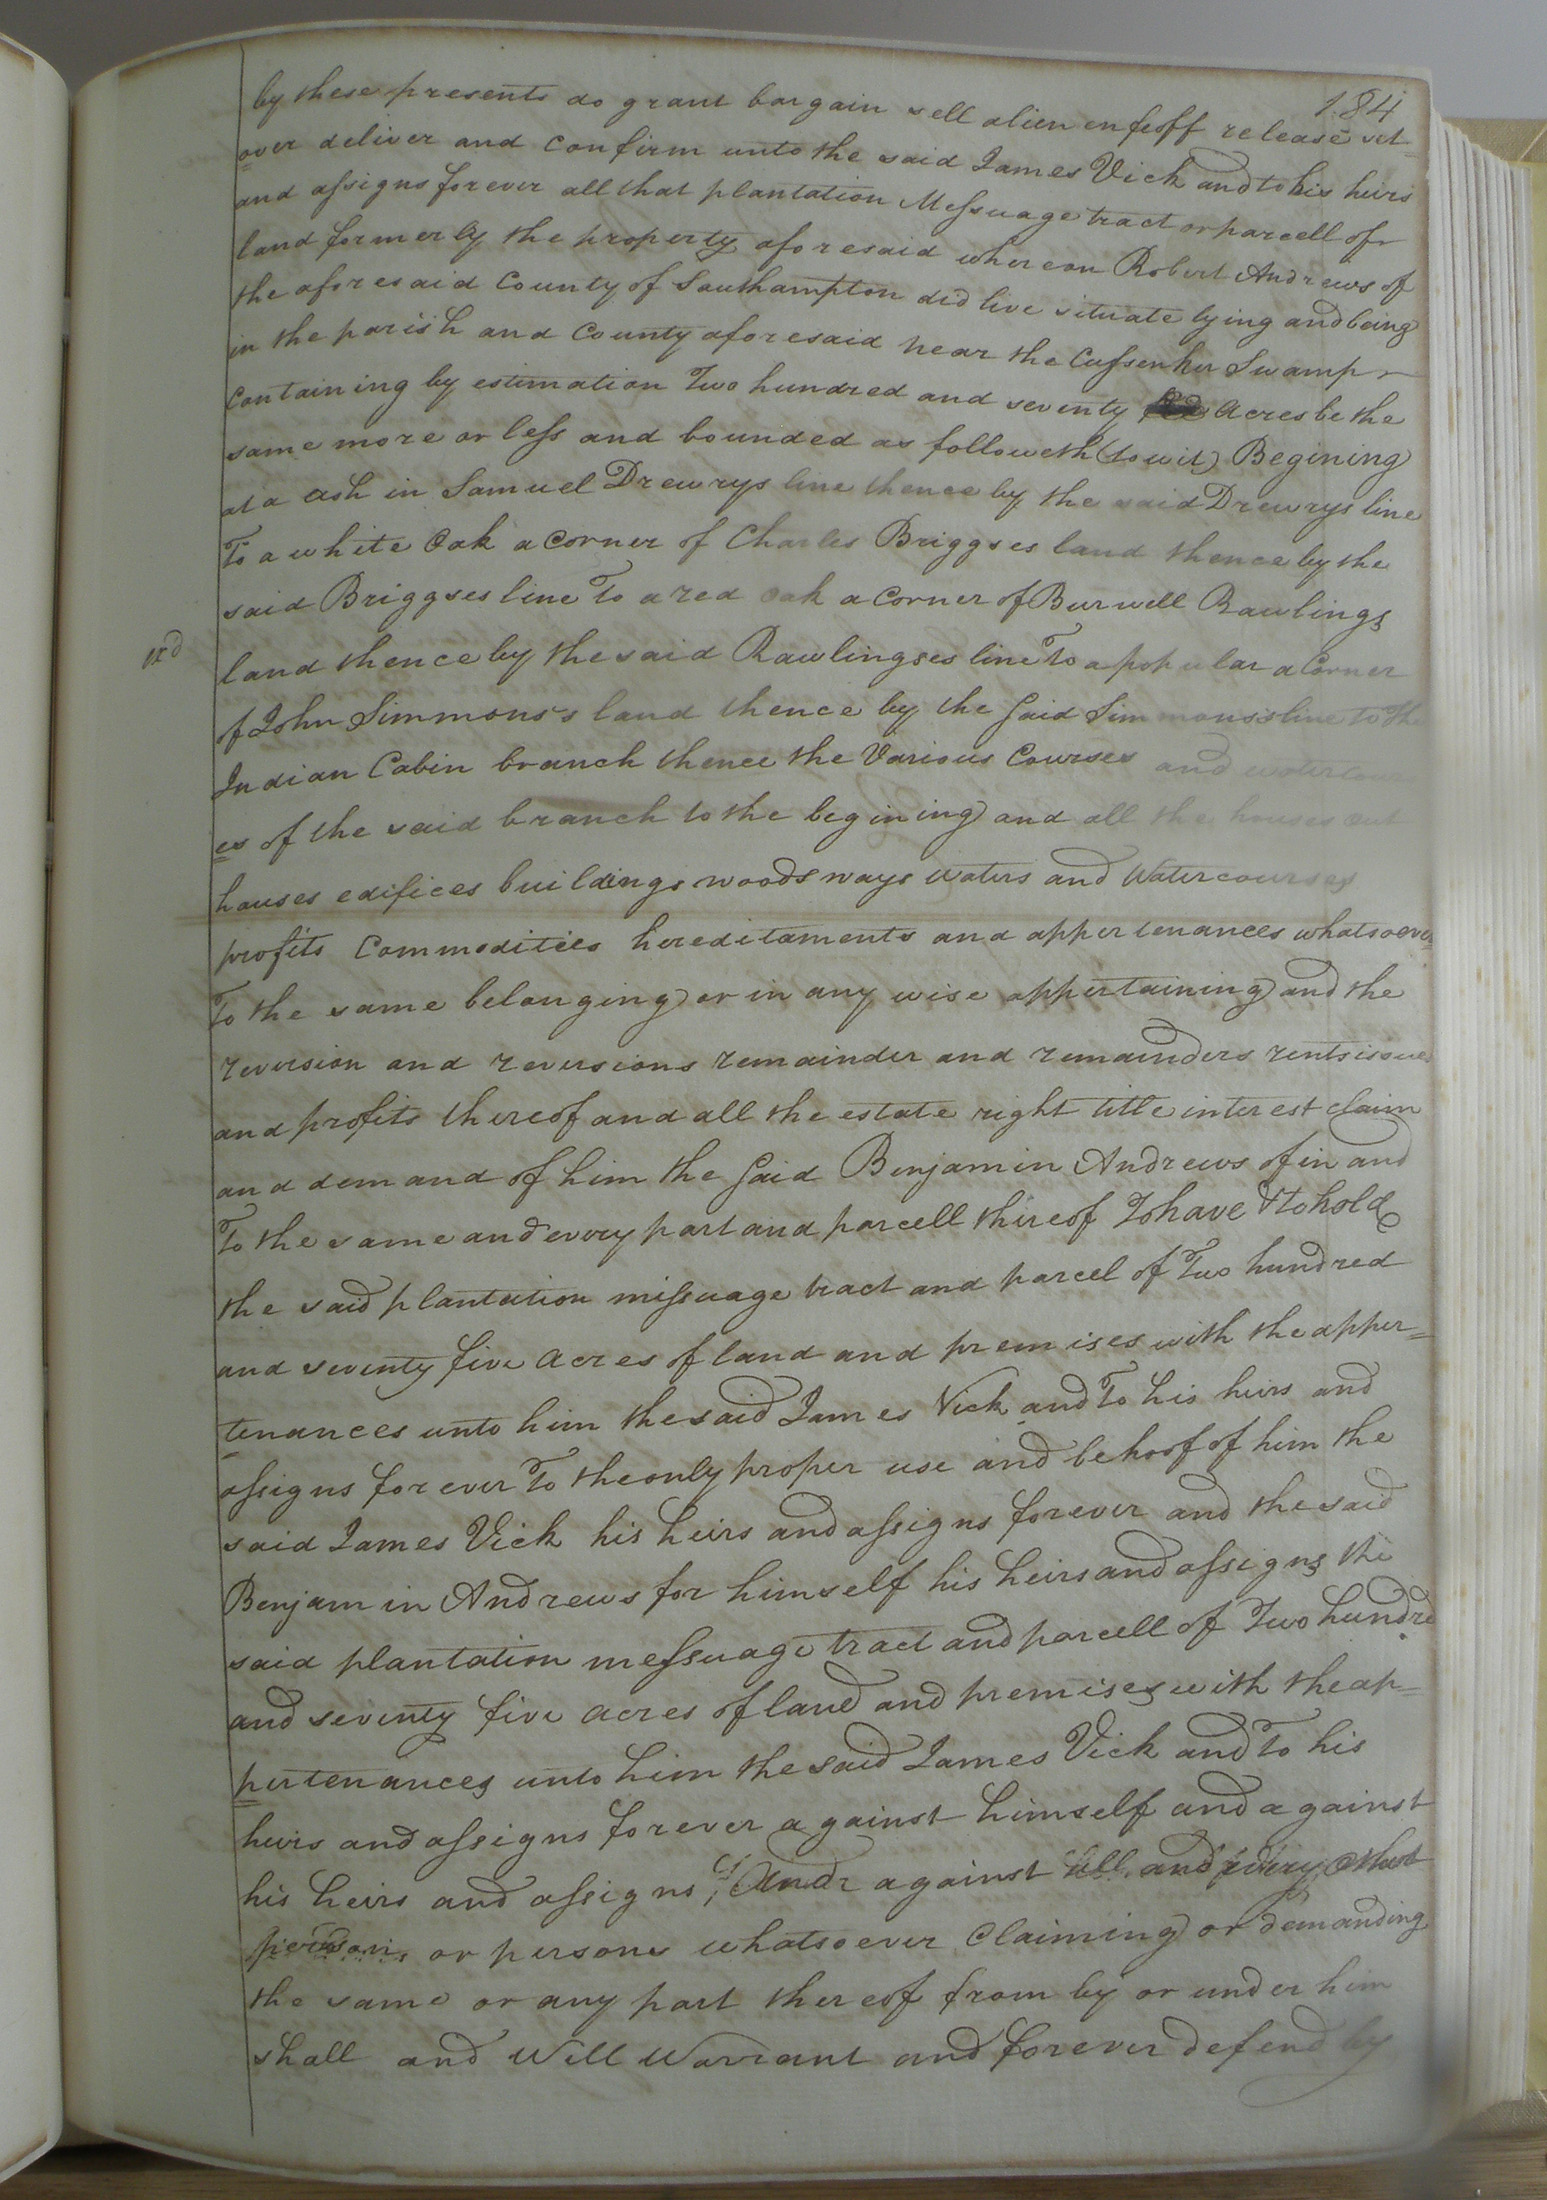 184
by these presents do grant bargain sell alien enfeoff release set
over deliver and confirm unto the said James Vick and to his heirs
and assigns forever all that plantation Messuage tract or parcell of
land formerly the property aforesaid whereon Robert Andrews of
the aforesaid County of Southampton did live situate lying and being
in the parish and County aforesaid near the Swamp
Containing by estimation Two hundred and seventy Acres be the
same more or less and bounded as followeth (to wit) Begining
at a ash in Samuel Drewrys line thence by the said Drewrys line
To a white Oak a Corner of Charles Briggses land thence by the
said Briggses line To a red oak a Corner of Burwell Rawlings
exd
land thence by the said Rawlingses line To a popular a Corner
of John Simmons's land thence by the said Simmons's line to the
Indian Cabin branch thence the Various Courses and watercours
es of the said branch to the begining and all the houses out
houses edifices buildings woods ways waters and Watercourses
profits Commodities hereditaments and appertenances whatsoever
To the same belonging or in any wise appertaining and the
reversion and reversions remainder and remainders rents issues
and profits thereof and all the estate right title interest claim
and demand of him the said Benjamin Andrews of in and
To the same and every part and parcell thereof To have & to hold
the said plantation missuage tract and parcel of Two hundred
and seventy five acres of land and premises with the apper=
tenances unto him the said James Vick and To his heirs and
assigns forever To the only proper use and behoof of him the
said James Vick his heirs and assigns forever and the said
Benjamin Andrews for himself his heirs and assigns the
said plantation messuage tract and parcell of Two hundred
and seventy five acres of land and premises with the ap=
pertenances unto him the said James Vick and To his
heirs and assigns forever against himself and against
his heirs and assigns, And against all and every other
person or persons whatsoever Claiming or demanding
the same or any part thereof from by or under him
shall and Will Warrant and forever defend by